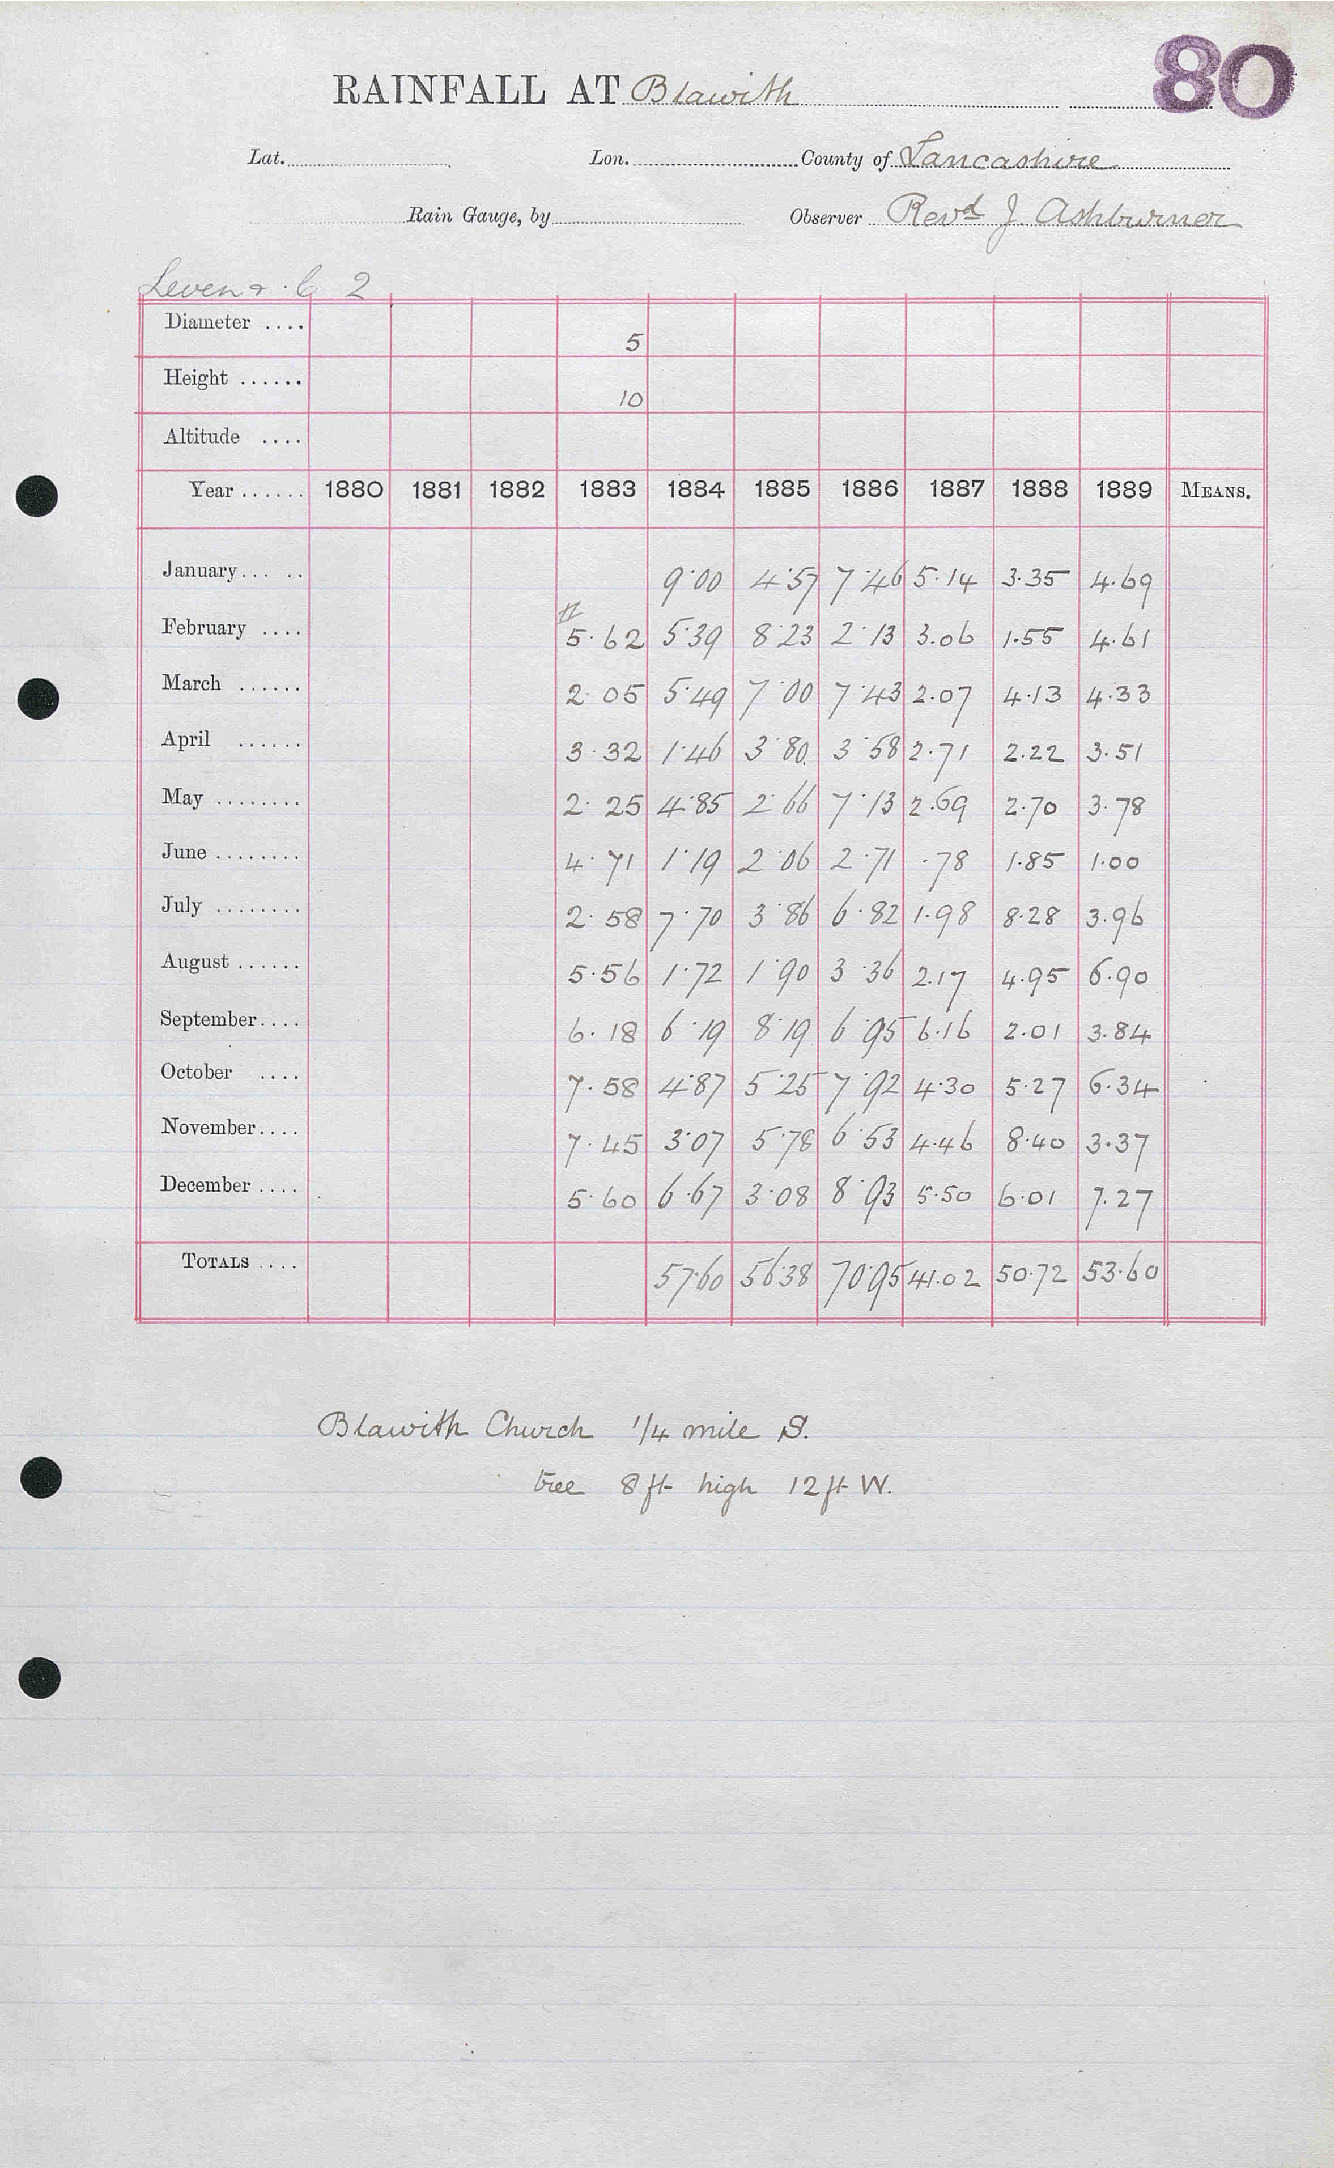 80
RAINFALL AT Blawith
Lat. Lon. County of Lancashire
Rain Gauge, by Observer Revd J Ashburner
Leven & C 2
Diameter .... 5
Height ...... 10
Altitude ....
Year ...... 1880 1881 1882 1883 1884 1885 1886 1887 1888 1889 MEANS.
January... .. 9.00 4.57 7.46 5.14 3.35 4.69
February .... # 5.62 5.39 8.23 2.13 3.06 1.55 4.61
March ...... 2.05 5.49 7.00 7.43 2.07 4.13 4.33
April ...... 3.32 1.46 3.80 3.58 2.71 2.22 3.51
May ........ 2.25 4.85 2.66 7.13 2.69 2.70 3.78
June ........ 4.71 1.19 2.06 2.71 .78 1.85 1.00
July ........ 2.58 7.70 3.86 6.82 1.98 8.28 3.96
August ...... 5.56 1.72 1.90 3.36 2.17 4.95 6.90
September.... 6.18 6.19 8.19 6.95 6.16 2.01 3.84
October .... 7.58 4.87 5.25 7.92 4.30 5.27 6.34
November.... 7.45 3.07 5.78 6.53 4.46 8.40 3.37
December .... 5.60 6.67 3.08 8.93 5.50 6.01 7.27
TOTALS .... 57.60 56.38 70.95 41.02 50.72 53.60
Blawith Church 1/4 mile S.
tree 8 ft high 12 ft W.